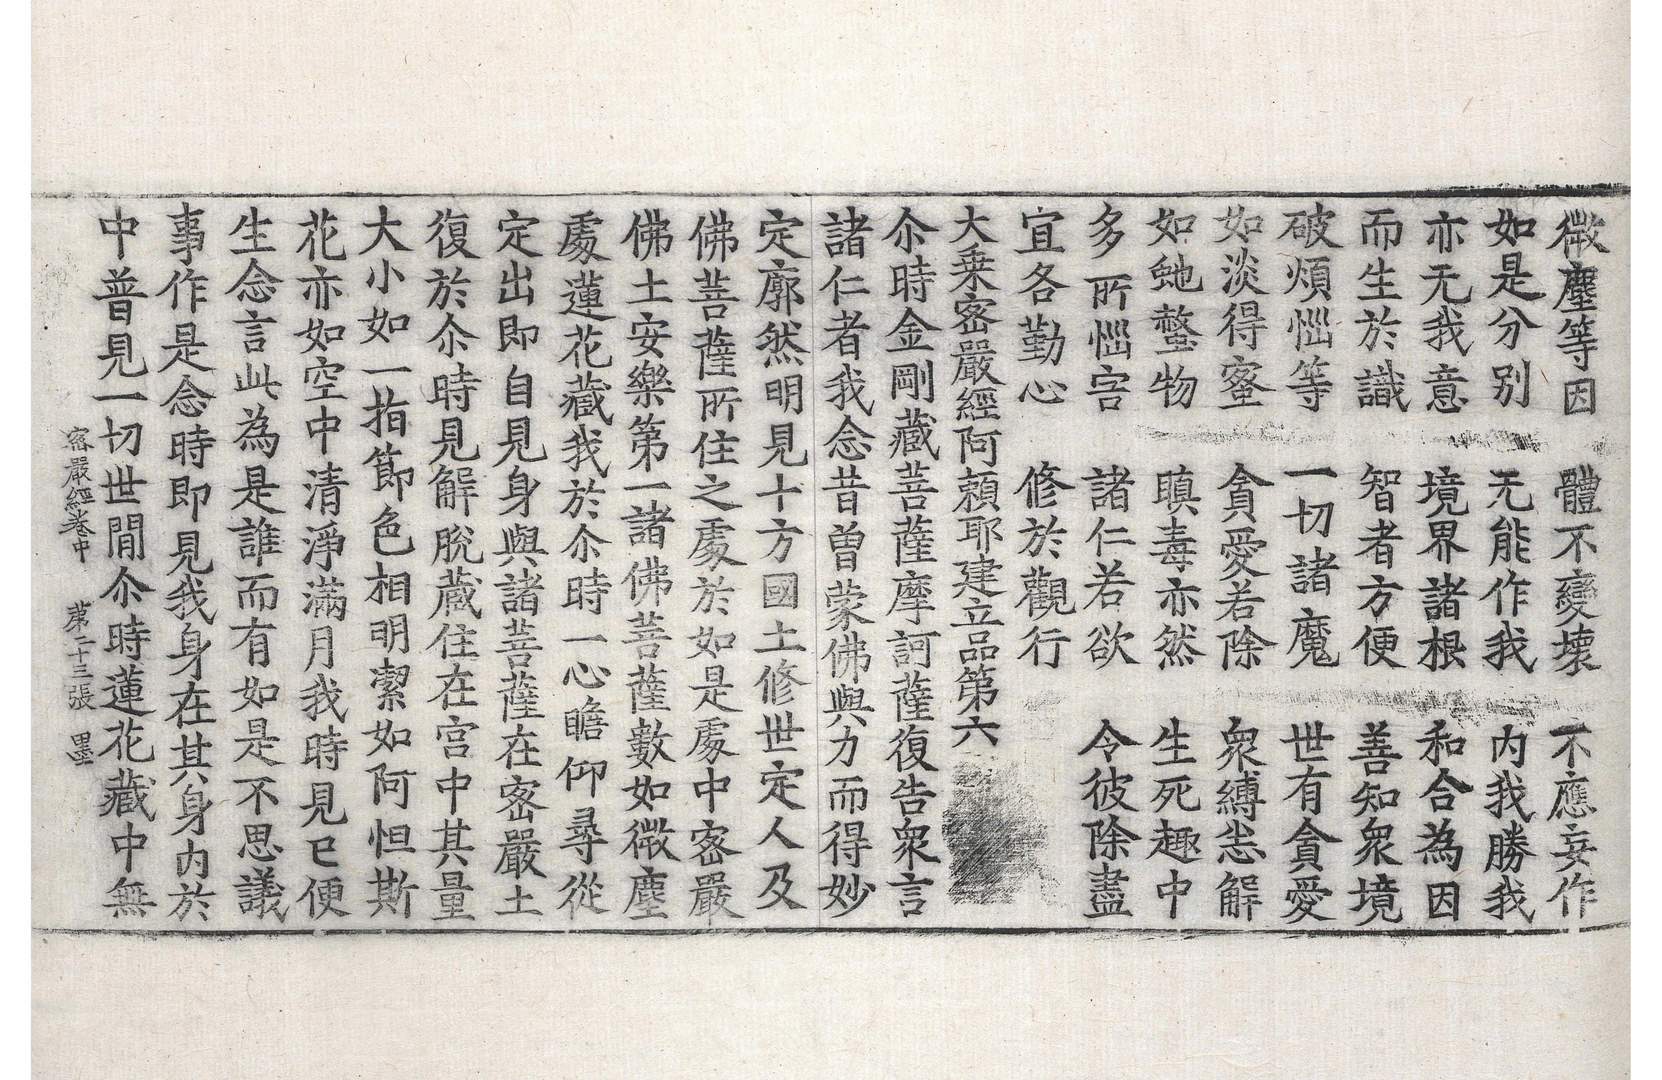 微塵等因　體不變壞　不應妄作
如是分别　无能作我　内我勝我
亦无我意　境界諸根　和合為因
而生於識　智者方便　善知衆境
破煩惱等　一切諸魔　世有貪愛
如淡得蜜　貪愛若除　衆縛悉解
如虵螫物　瞋毒亦然　生死趣中
多所惱害　諸仁若欲　令彼除盡
宜各勤心　修於觀行
大乗密嚴經阿頼耶建立品第六
尒時金剛藏菩薩摩訶薩復告衆言
諸仁者我念昔曽蒙佛與力而得妙
定廓然明見十方國土修世定人及
佛菩薩所住之處於如是處中密嚴
佛土安樂第一諸佛菩薩數如微塵
處蓮花藏我於尒時一心瞻仰尋從
定出即自見身與諸菩薩在密嚴土
復於尒時見解脫藏住在宫中其量
大小如一指節色相明潔如阿怛斯
花亦如空中清淨滿月我時見已便
生念言此為是誰而有如是不思議
事作是念時即見我身在其身内於
中普見一切世閒尒時蓮花藏中無
密嚴經卷中　第二十三張　墨